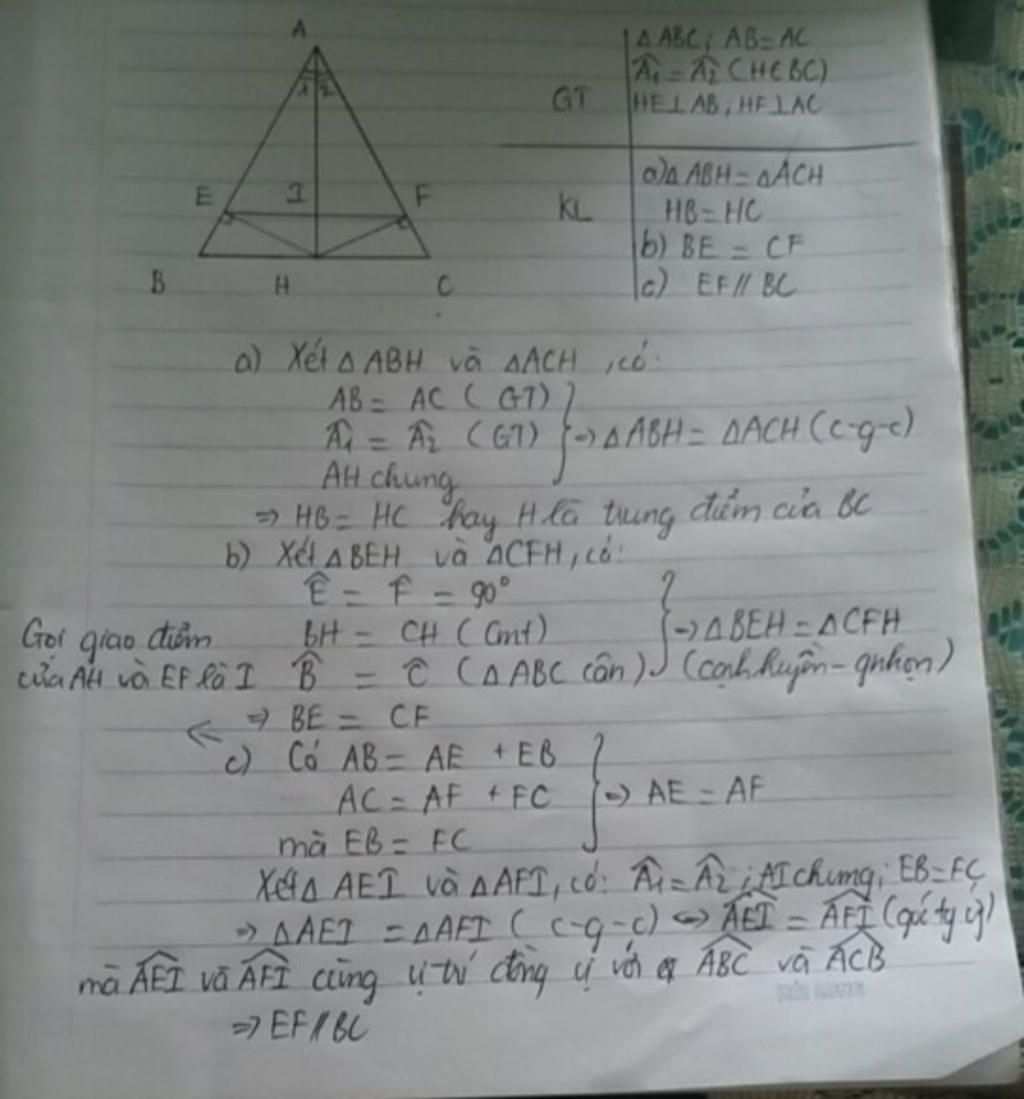 A
1 2
E I F
B H C
GT
△ABC; AB=AC
Â1 = Â2 (H∈BC)
HE⊥AB, HF⊥AC
KL
a) △ABH = △ACH
HB = HC
b) BE = CF
c) EF // BC
a) Xét △ABH và △ACH, có:
AB = AC (GT)
Â1 = Â2 (GT) } => △ABH = △ACH (c-g-c)
AH chung
=> HB = HC hay H là trung điểm của BC
b) Xét △BEH và △CFH, có:
Ê = F̂ = 90°
BH = CH (Cmt) } => △BEH = △CFH
B̂ = Ĉ (△ABC cân) (cạnh huyền - gnhọn)
=> BE = CF
Gọi giao điểm
của AH và EF là I
c) Có AB = AE + EB
AC = AF + FC } => AE = AF
mà EB = FC
Xét △AEI và △AFI, có: Â1 = Â2; AI chung; EB = FC
=> △AEI = △AFI (c-g-c) <=> AEI = AFI (góc tg ứ)
mà AEI và AFI cùng vị trí đồng vị với ABC và ACB
=> EF // BC